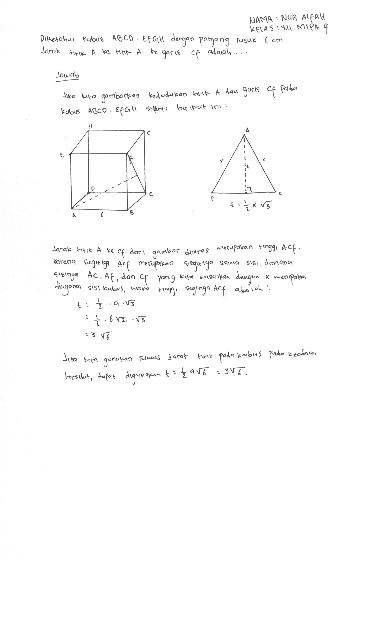 NAMA : NUR ALFAH
KELAS : XII MIPA 4
Diketahui kubus ABCD.EFGH dengan panjang rusuk 6 cm
Jarak titik A ke titik A ke garis CF adalah...
Jawab
Jika kita gambarkan kedudukan titik A dan garis CF pada
kubus ABCD.EFGH seperti berikut ini :
H
G
E
F
D
C
A
6
B
A
x
x
t
F
C
t = 1/2 x √3
Jarak titik A ke CF dari gambar diatas merupakan tinggi ACF.
karena segitiga ACF merupakan segitiga sama sisi, dimana
sisinya AC, AF, dan CF yang kita misalkan dengan x merupakan
diagonal sisi kubus, maka tinggi segitiga ACF adalah :
t = 1/2 . a . √3
= 1/2 . 6 √2 . √3
= 3 √6
Jika kita gunakan rumus jarak titik pada kubus pada keadaan
tersebut, dapat digunakan t = 1/2 a√6 = 3√6.